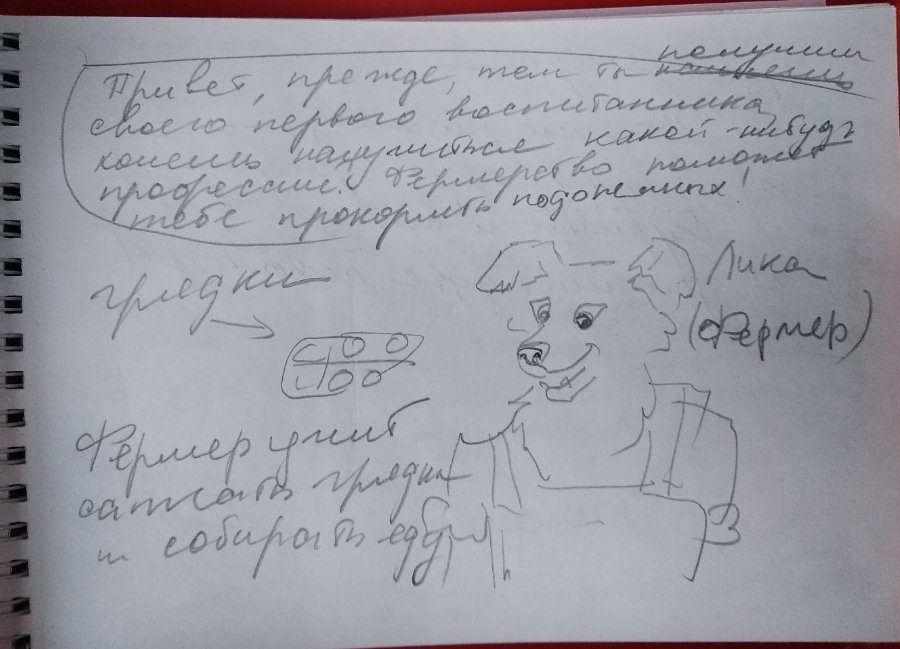 Привет, прежде, чем ты получишь
своего первого воспитанника
хочешь научиться какой-нибудь
профессии. Фермерство поможет
тебе прокормить подопечных!
грядки
Лика
(Фермер)
Фермер учит
сажать грядки
и собирать еду